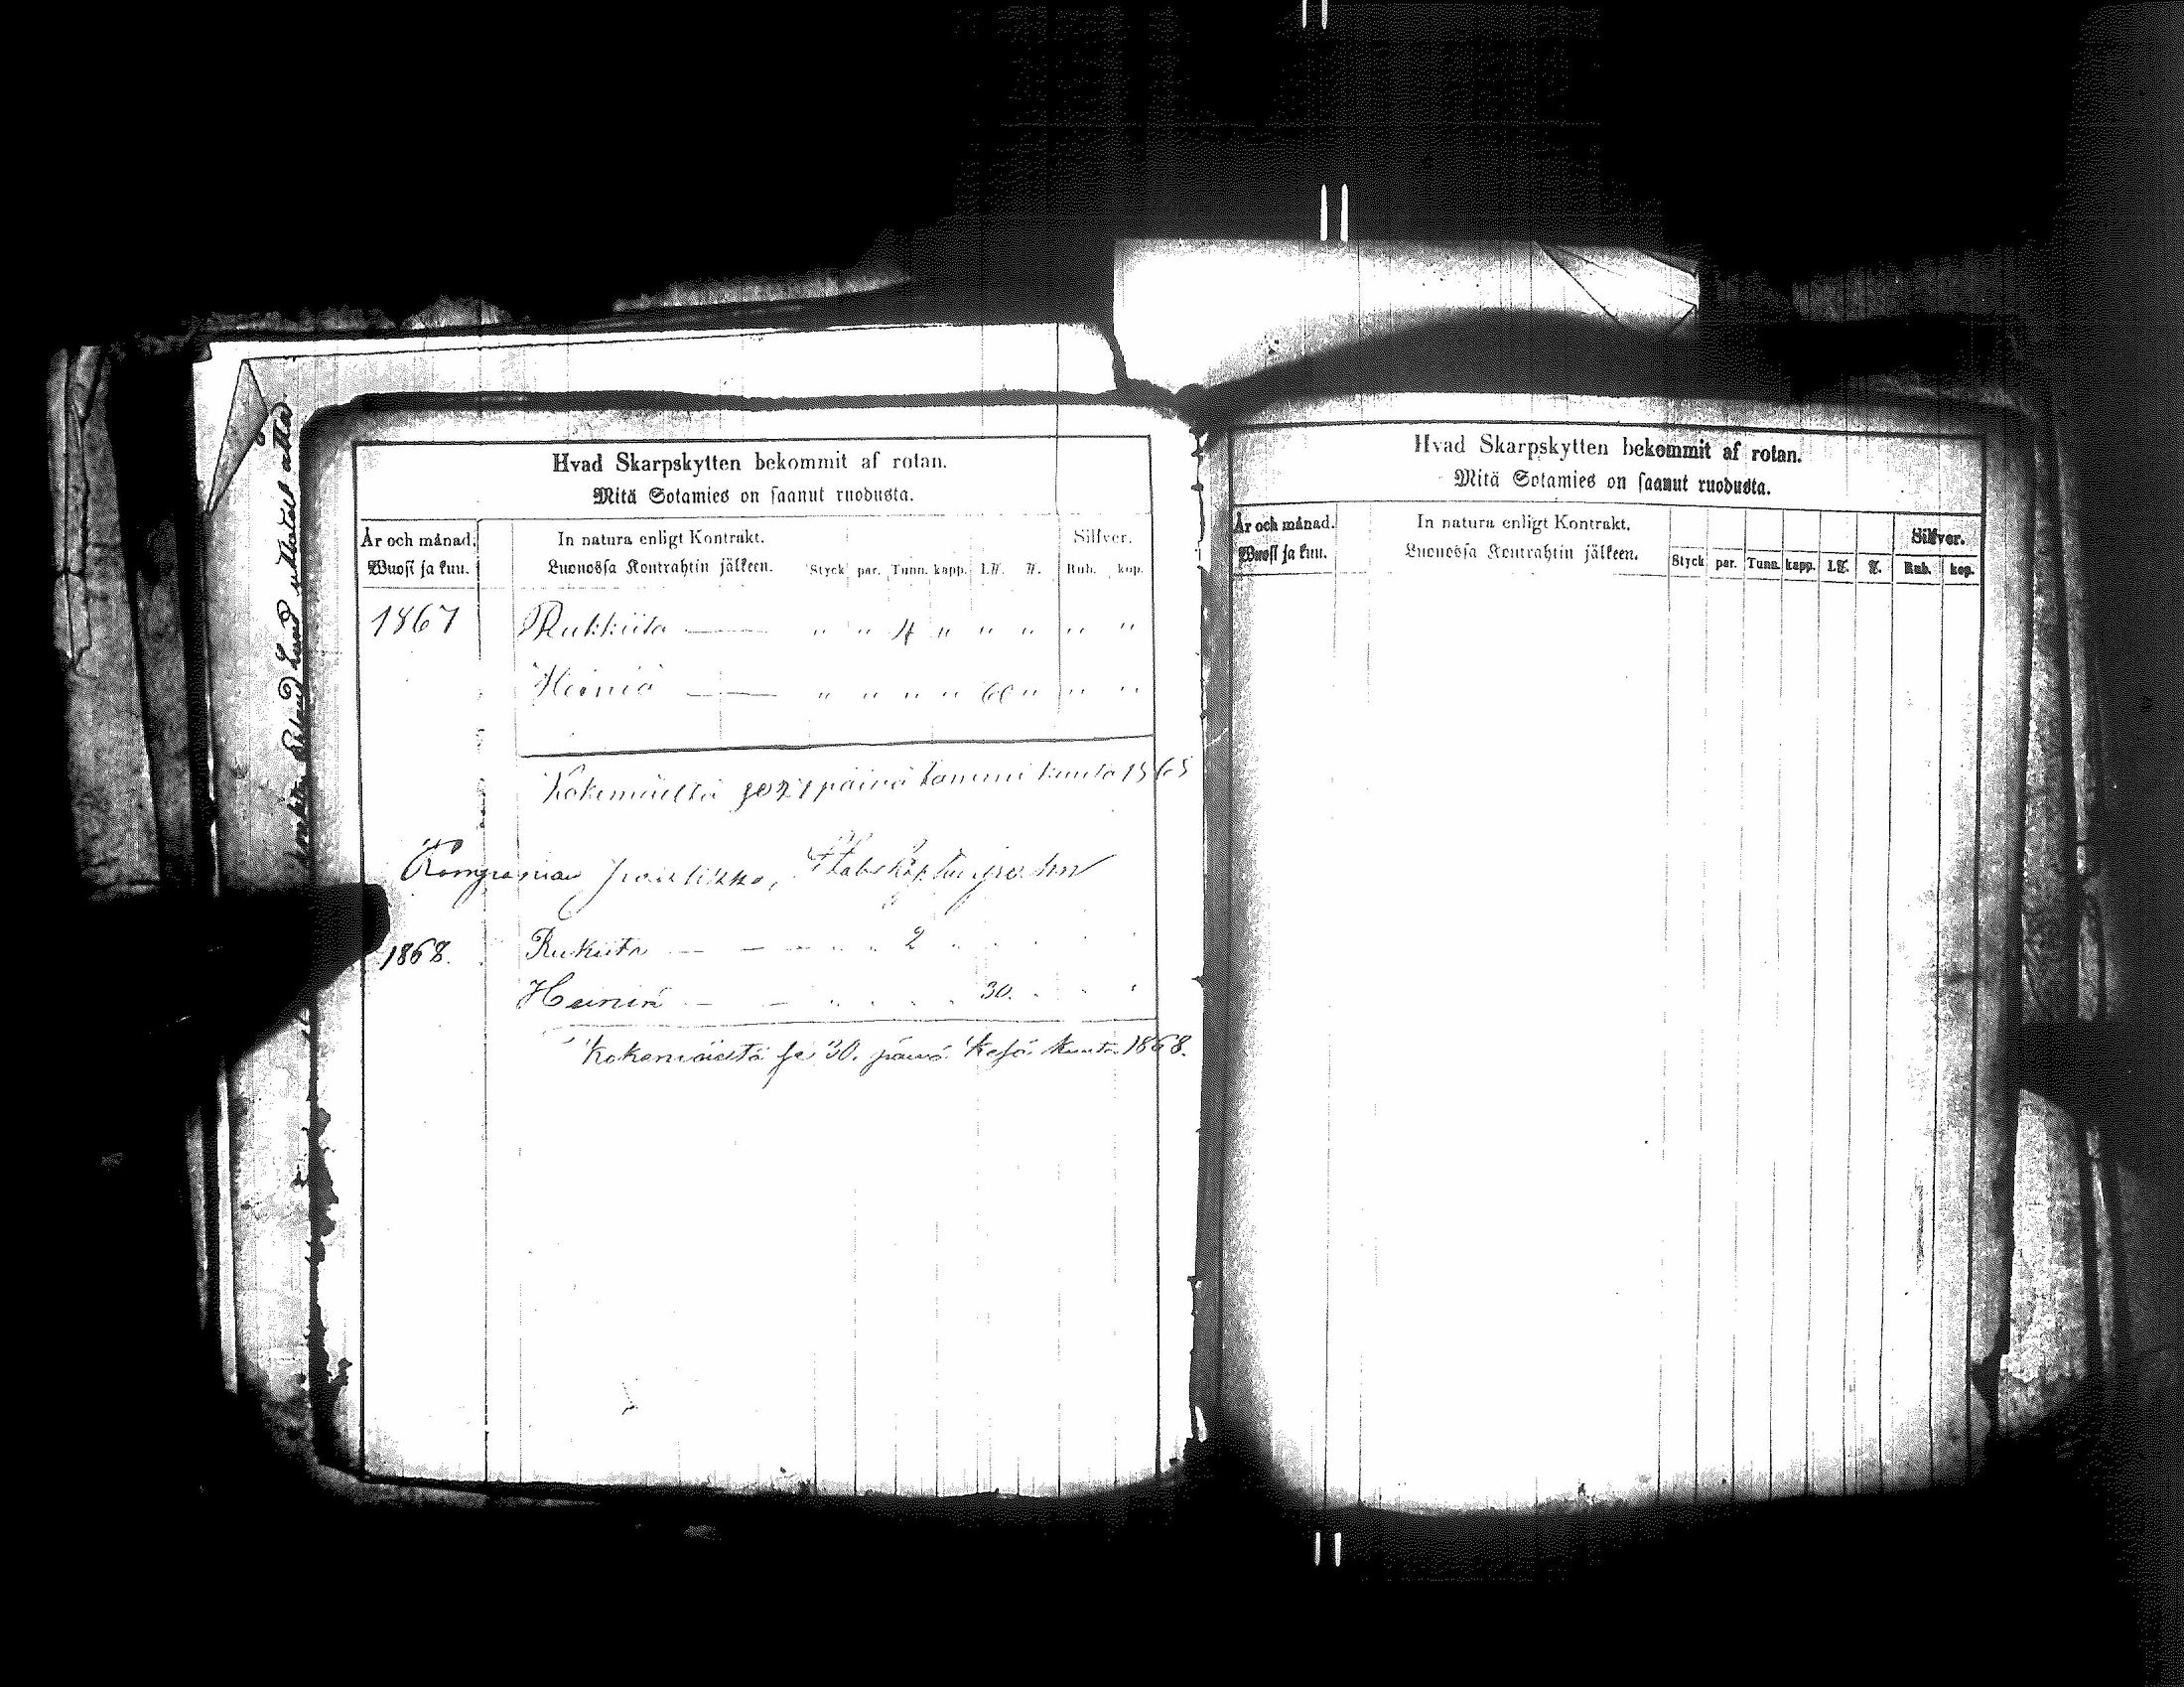 Hvad Skarpskytten bekommit af rotan.
Mitä Sotamies on saanut ruodusta.
År och månad. In natura enligt Kontrakt. Silfver.
Wuosi ja kuu. Luonossa Kontrahtin jälkeen. Styck par. Tunn. kapp. L℔. ℔. Rub. kop.
1867 Rukkiita — " " 4 " " " " "
Heiniä — " " " " 60 " " "
Kokemäeltä se 21 päivä tammi kuuta
Kompanian
1868. Rukiita — — 2
Heiniä — — 30.
Kokemäeltä se 30. päivä Kesä kuuta 1868.
Hvad Skarpskytten bekommit af rotan.
Mitä Sotamies on saanut ruodusta.
År och månad. In natura enligt Kontrakt. Silfver.
Wuosi ja kuu. Luonossa Kontrahtin jälkeen. Styck par. Tunn. kapp. L℔. ℔. Rub. kop.